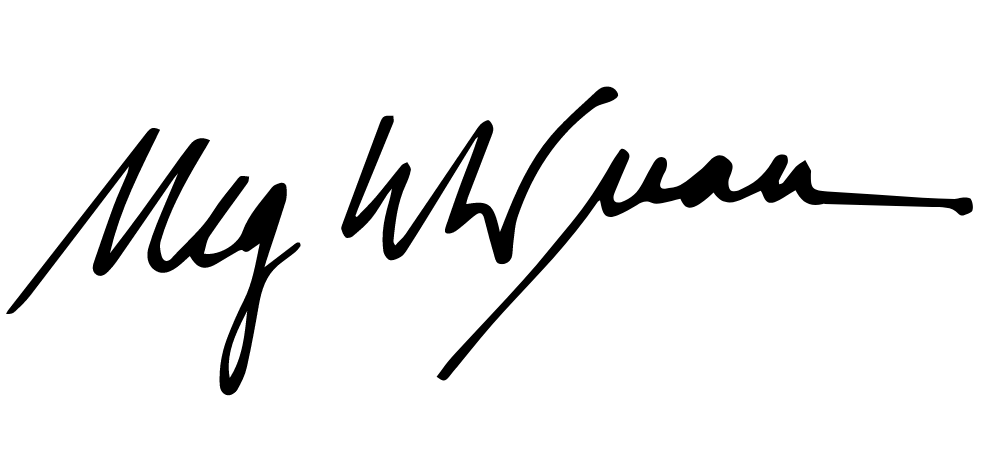 Meg Whitman